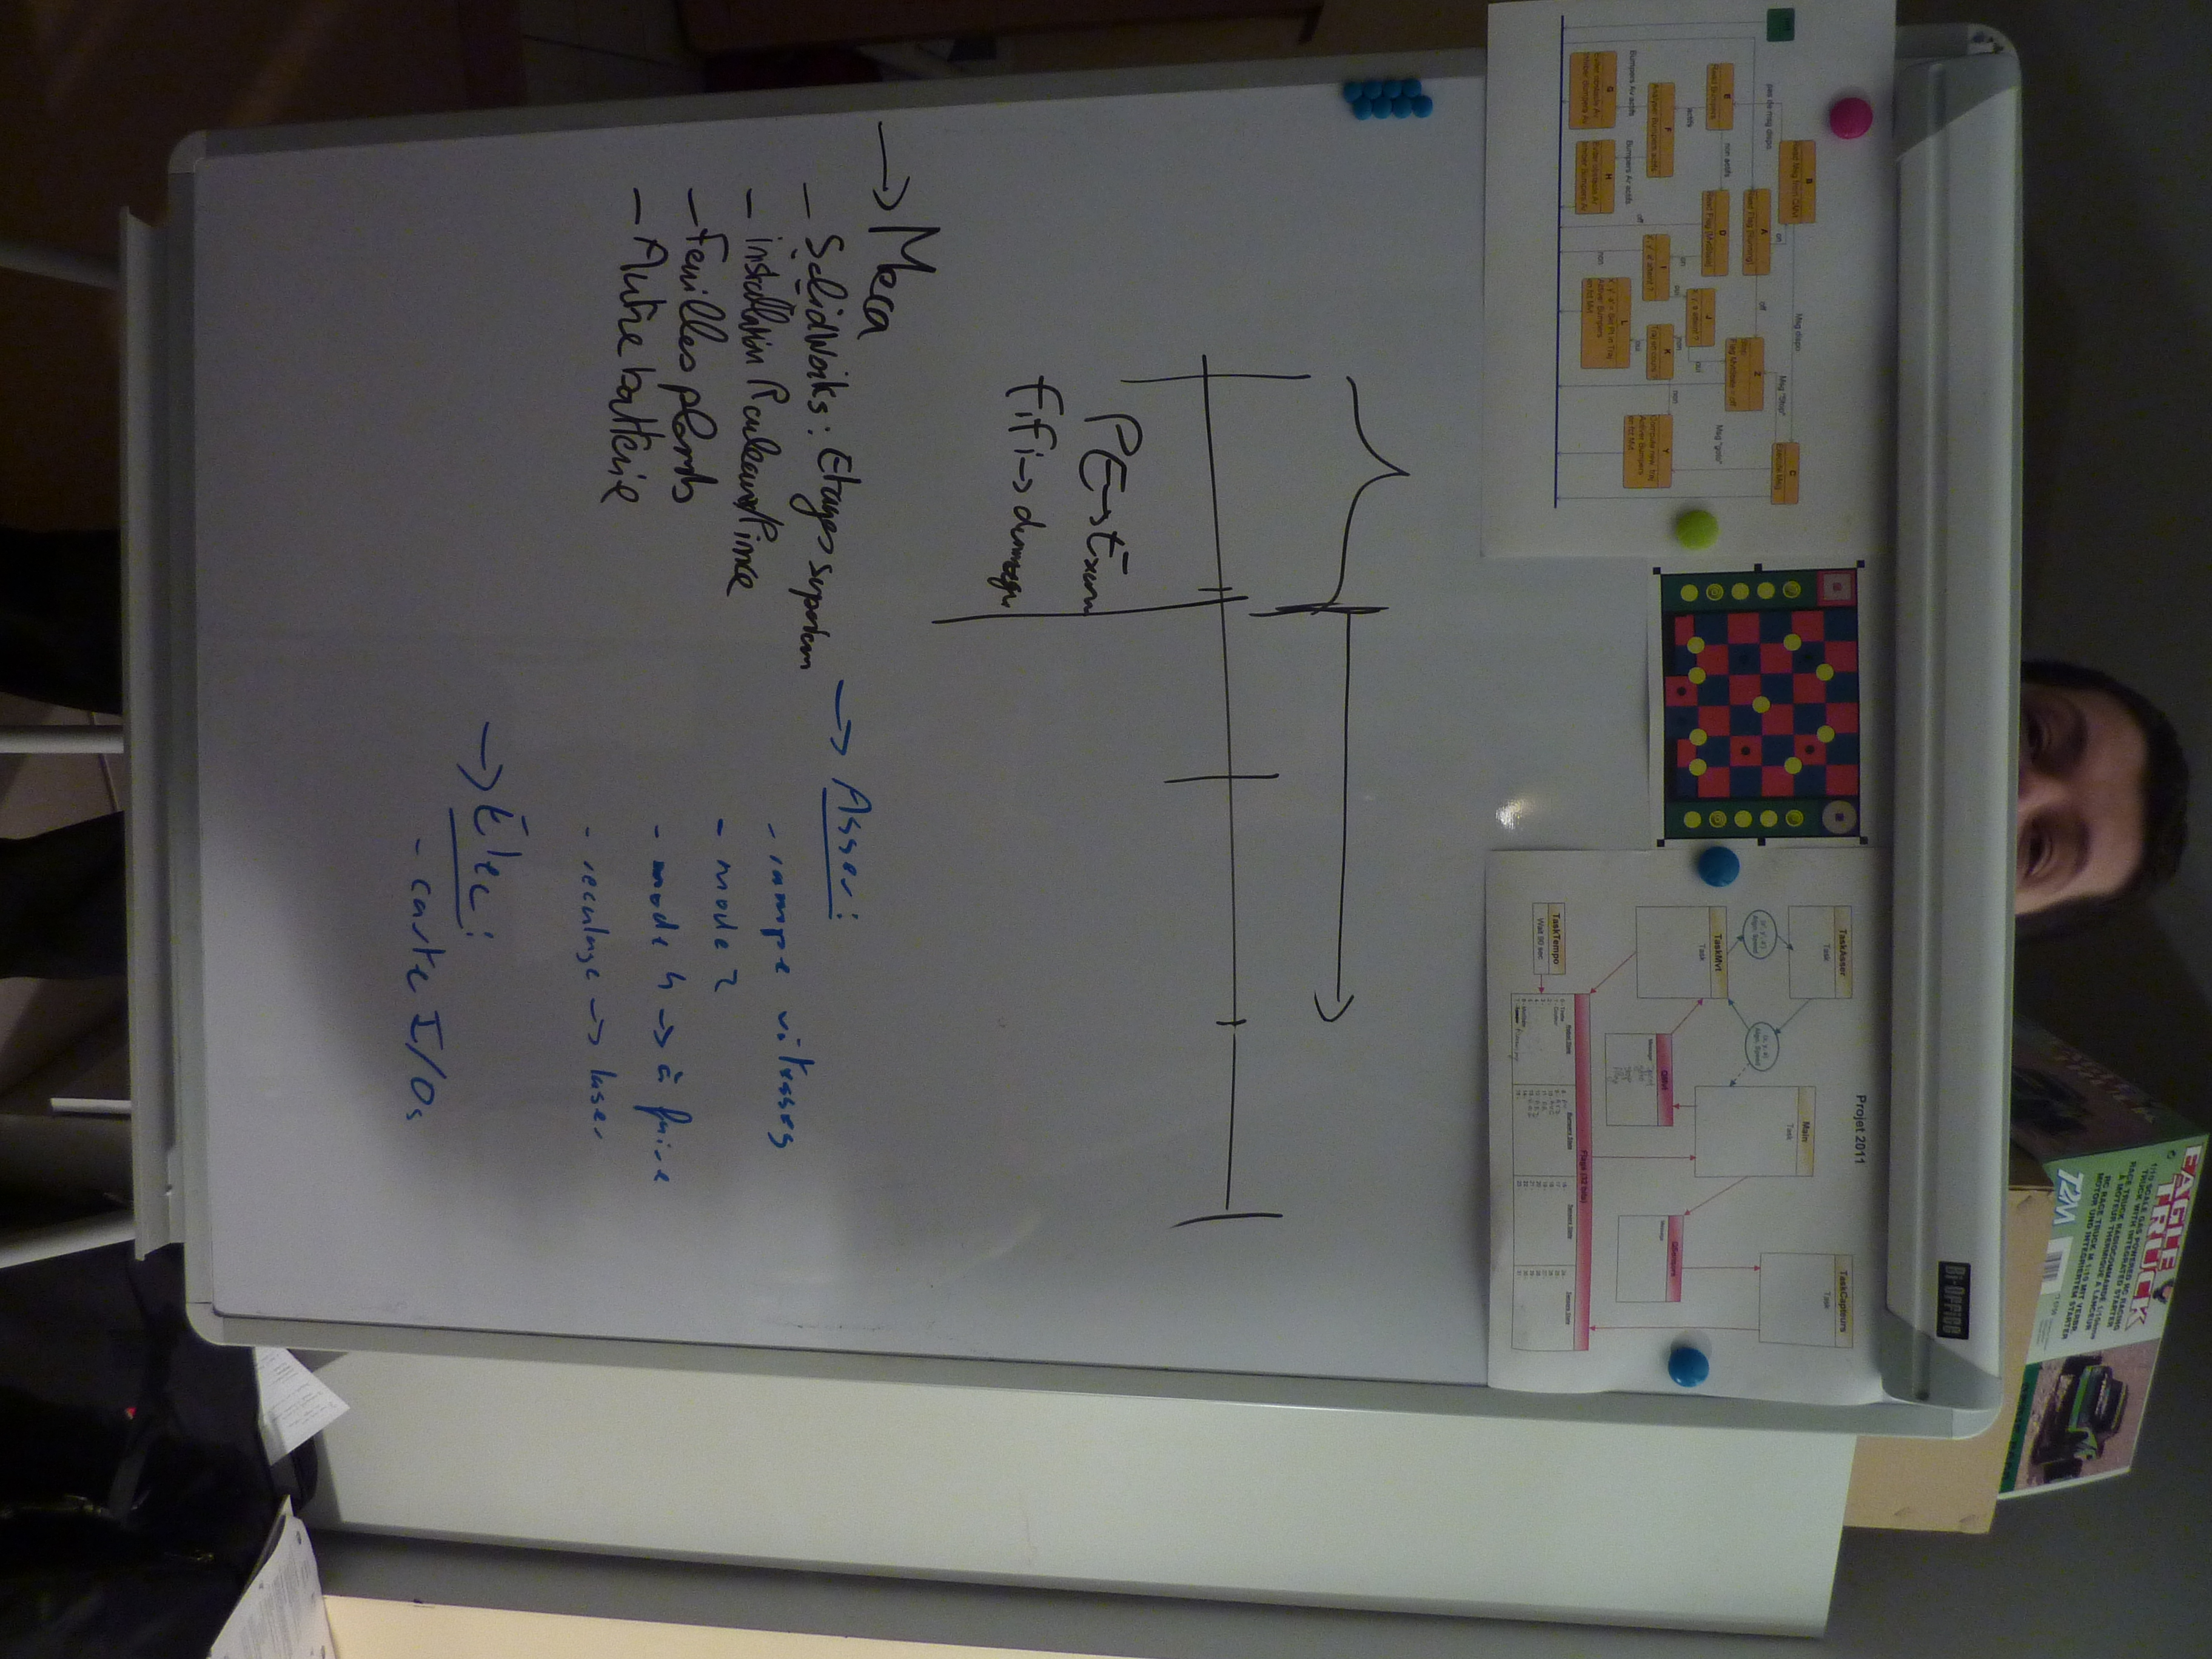 EAGLE
TRUCK
1/10 SCALE GAS POWERED RC RACING
TRUCK WITH INTEGRATED STARTER
RACE TRUCK RADIOCOMMANDÉ 1/10ème
A MOTEUR THERMIQUE A LANCEUR
RC RACE TRUCK M 1:10 MIT VERBR.
MOTOR UND INTEGRIERTEM STARTER
T2M
Bi-Office
B
Read Msg from QMvt
Msg dispo
C
Execute Msg
pas de msg dispo
on
A
Read Flag [Running]
off
Msg "Stop"
Z
Stop
Flag MvtState = off
E
Read Bumpers
non actifs
D
Read Flag [MvtState]
Msg "goto"
J
x, y, a atteint ?
oui
actifs
on
oui
non
non
F
Analyser Bumpers actifs
I
x', y', a' atteint ?
K
Traj en cours ?
Y
Compute new. traj
Activer Bumpers
en fct Mvt
Bumpers Av actifs
Bumpers Ar actifs
off
oui
L
x', y', a' = Set Pt in Traj
Activer Bumpers
en fct Mvt
non
G
Eviter obstacle Av
Inhiber Bumpers Av
H
Eviter obstacle Ar
Inhiber Bumpers Ar
Projet 2011
TaskAsser
Task
Main
Task
TaskCapteurs
Task
(x', y', a')
Algo. Speed
(x, y, a)
Algo. Speed
TaskMvt
Task
QMvt
Message:
QSensors
Message:
Flags (32 bits)
Robot State
Bumpers State
Sensors State
Sensors State
TaskTempo
Wait 90 sec
PE → Exam
Fifi →
→ Meca
- SolidWorks : Etages
- installation Rouleaux/Pince
- Feuilles plomb
- Autre batterie
→ Asser :
- rampe vitesses
- mode 2
- mode 4 → à faire
- recalage → laser
→ Élec :
- carte I/Os